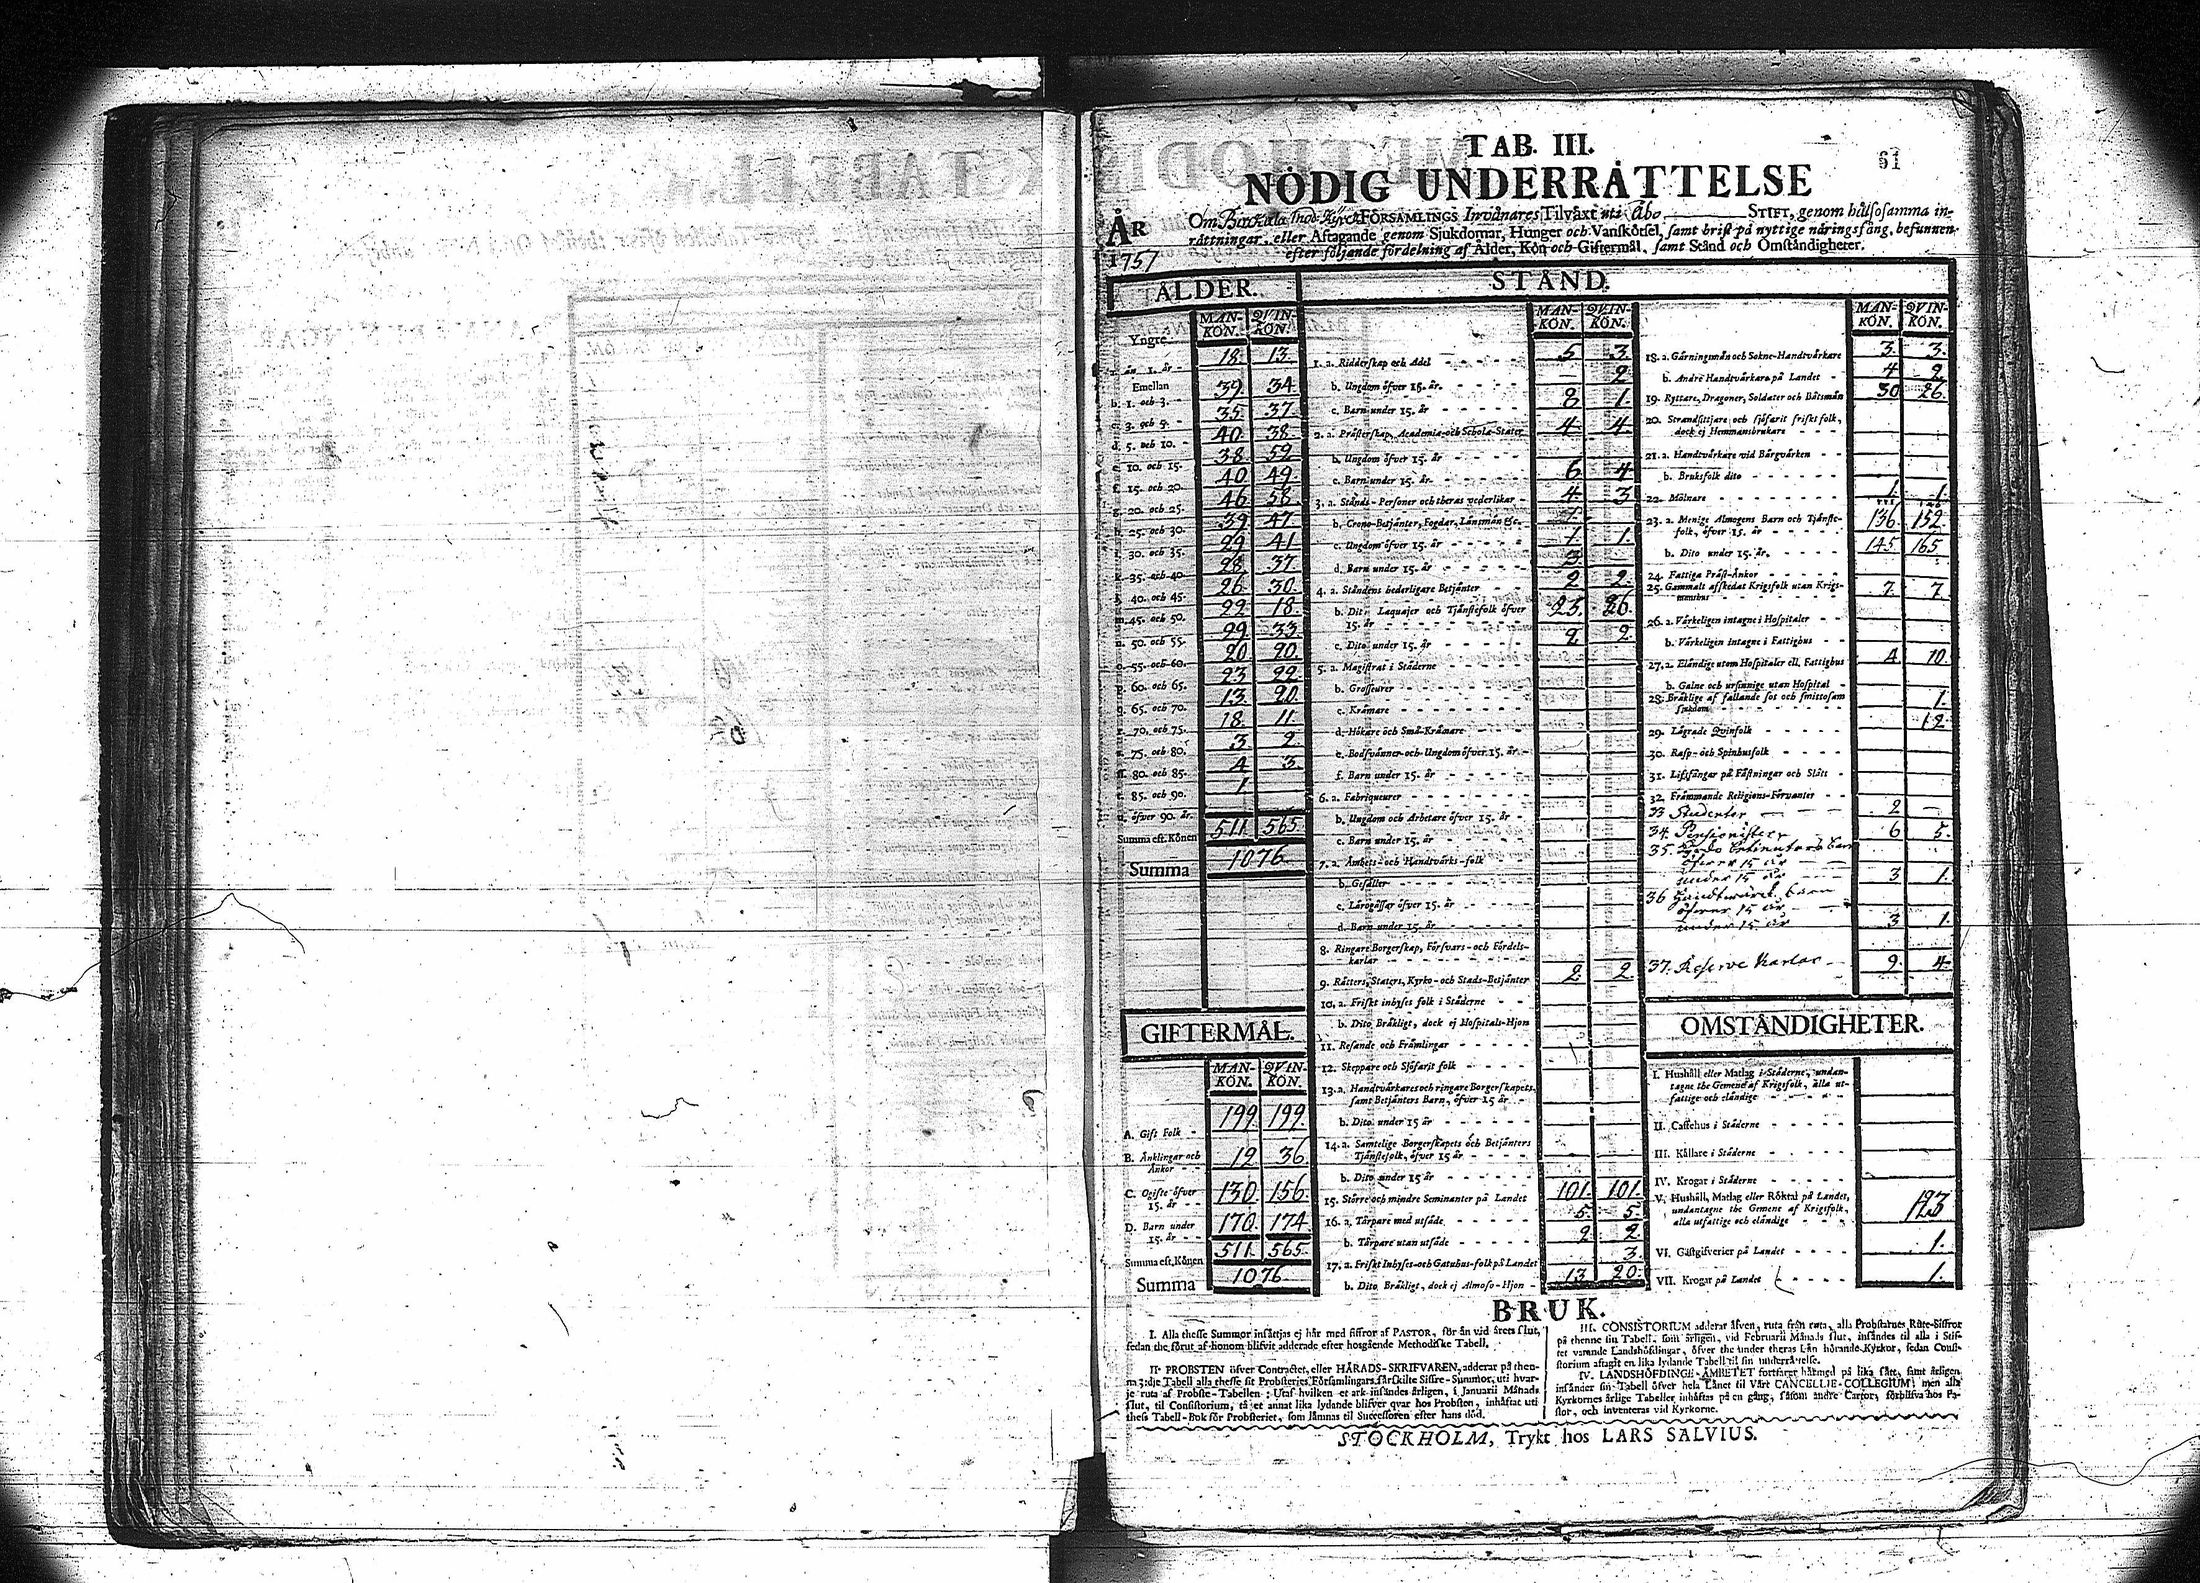 61
TAB. III.
NÖDIG UNDERRÄTTELSE
ÅR 1751
Om FÖRSAMLINGS Invånares Tilväxt uti Åbo STIFT, genom hälsosamma in-
rättningar, eller Aftagande genom Sjukdomar, Hunger och Vanskötsel, samt brist på nyttige näringsfång, befunnen
efter följande fördelning af Ålder, Kön och Giftermål, samt Stånd och Omständigheter.
ÅLDER.
MAN-KÖN. QVIN-KÖN.
Yngre
a. än 1. år - 18 13
Emellan
b. 1. och 3. 39 34
c. 3. och 5. 35 37
d. 5. och 10. 40 38
e. 10. och 15. 38 52
f. 15. och 20. 40 49
g. 20. och 25. 46 58
h. 25. och 30. 39 47
i. 30. och 35. 29 41
k. 35. och 40. 28 37
l. 40. och 45. 26 30
m. 45. och 50. 22 18
n. 50. och 55. 29 33
o. 55. och 60. 20 20
p. 60. och 65. 23 22
q. 65. och 70. 13 20
r. 70. och 75. 18 11
s. 75. och 80. 3 2
ſſ. 80. och 85. 4 3
t. 85. och 90. 1
u. öfver 90. år.
Summa eft. Könen 511 565
Summa 1076
GIFTERMÅL.
MAN-KÖN. QVIN-KÖN.
A. Gift Folk - 199 199
B. Änklingar och
Änkor 12 36
C. Ogifte öfver
15. år 130 156
D. Barn under
15. år 170 174
Summa eft. Könen 511 565
Summa 1076
STÅND.
MAN-KÖN. QVIN-KÖN.
1. a. Ridderskap och Adel 5 3
b. Ungdom öfver 15. år. 2
c. Barn under 15. år 8 1
2. a. Prästerskap, Academiæ- och Schole-Stater 4 4
b. Ungdom öfver 15. år
c. Barn under 15. år 6 4
3. a. Stånds-Personer och theras vederlikar 4 3
b. Crono-Betjänter, Fogdar, Länsmän &c. 1
c. Ungdom öfver 15. år 1 1
d. Barn under 15. år 3
4. a. Ståndens hederligare Betjänter 2 2
b. Dito Laquajer och Tjänstefolk öfver
15. år 25 26
c. Dito under 15. år 2 2
5. a. Magistrat i Städerne
b. Grosseurer
c. Krämare
d. Hökare och Små-Krämare
e. Bodsvänner och Ungdom öfver 15. år
f. Barn under 15. år
6. a. Fabriqueurer
b. Ungdom och Arbetare öfver 15. år
c. Barn under 15. år
7. a. Ämbets- och Handtvärks-folk
b. Gesäller
c. Lärogåssar öfver 15. år
d. Barn under 15. år
8. Ringare Borgerskap, Försvars- och Fördels-
karlar
9. Rätters, Staters, Kyrko- och Stads-Betjänter 2 2
10. a. Friskt inhyses folk i Städerne
b. Dito, Bräkligt, dock ej Hospitals-Hjon
11. Resande och Främlingar
12. Skeppare och Sjöfarit folk
13. a. Handtvärkares och ringare Borgerskapets,
samt Betjänters Barn, öfver 15 år
b. Dito under 15 år
14. a. Samtelige Borgerskapets och Betjänters
Tjänstefolk, öfver 15 år
b. Dito under 15 år
15. Större och mindre Hemmanter på Landet 101 101
16. a. Tårpare med utsäde 5 5
b. Tårpare utan utsäde 2 2
17. a. Friskt Inhyses- och Gatuhus-folk på Landet 3
b. Dito Bräkligt, dock ej Almoso-Hjon 13 20
MAN-KÖN. QVIN-KÖN.
18. a. Gärningsmän och Sokne-Handtvärkare 3 3
b. Andre Handtvärkare på Landet 4 2
19. Ryttare, Dragoner, Soldater och Båtsmän 30 26
20. Strandsittjare och sjöfarit friskt folk,
dock ej Hemmansbrukare
21. a. Handtvärkare vid Bärgvärken
b. Bruksfolk dito
22. Mölnare 1 1
23. a. Menige Almogens Barn och Tjänste-
folk, öfver 15. år 136 152
b. Dito under 15. år. 145 165
24. Fattiga Präst-Änkor
25. Gammalt afskedat Krigsfolk utan Krigs-
mans hus 7 7
26. a. Värkeligen intagne i Hospitaler
b. Värkeligen intagne i Fattighus
27. a. Eländige utom Hospitaler ell. Fattighus 4 10
b. Galne och ursinnige utan Hospital
28. Bräklige af fallande sot och smittosam
sjukdom 1
29. Lägrade Qvinfolk 12
30. Rasp- och Spinhusfolk
31. Lifsfångar på Fästningar och Slått
32. Främmande Religions-Förvanter
33 Studenter 2
34. Pensionister 6 5
35.
öfver 15 år
under 15 år 3 1
36 Handtwärck. barn
öfver 15 år
under 15 år 3 1
37. Reserve Karlar 9 4
OMSTÄNDIGHETER.
I. Hushåll eller Matlag i Städerne, undan-
tagne the Gemene af Krigsfolk, alla ut-
fattige och eländige
II. Caffehus i Städerne
III. Källare i Städerne
IV. Krogar i Städerne
V. Hushåll, Matlag eller Röktal på Landet,
undantagne the Gemene af Krigsfolk,
alla utfattige och eländige 123
VI. Gästgifverier på Landet 1
VII. Krogar på Landet 1
BRUK.
I. Alla thesse Summor insättjas ej här med siffror af PASTOR, för än vid årets slut,
sedan the förut af honom blifvit adderade efter hosgående Methodiske Tabell.
II. PROBSTEN öfver Contractet, eller HÄRADS-SKRIFVAREN, adderar på then-
na 3:die Tabell alla thesse sit Probsteries Församlingars särskilte Siffre-Summor, uti hvar-
je ruta af Probste-Tabellen; Utaf hvilken et ark insändes årligen, i Januarii Månads
slut, til Consistorium, tå et annat lika lydande blifver qvar hos Probsten, inhäftat uti
thess Tabell-Bok för Probsteriet, som lämnas til Successoren efter hans död.
III. CONSISTORIUM adderar äfven, ruta från ruta, alla Probstarnes Rute-Siffror
på thenne sin Tabell, som årligen, vid Februarii Månads slut, insändes til alla i Stif-
tet varande Landshöfdingar, öfver the under theras Län hörande Kyrkor, sedan Consi-
storium aftagit en lika lydande Tabell til sin underrättelse.
IV. LANDSHÖFDINGE-ÄMBETET fortfarer härmed på lika sätt, samt årligen
insänder sin Tabell öfver hela Länet til Vårt CANCELLIE-COLLEGIUM; men alla
Kyrkornes årlige Tabeller inhäftas på en gång, såsom andre Cartor, förblifva hos Pa-
stor, och inventeras vid Kyrkorne.
STOCKHOLM, Trykt hos LARS SALVIUS.